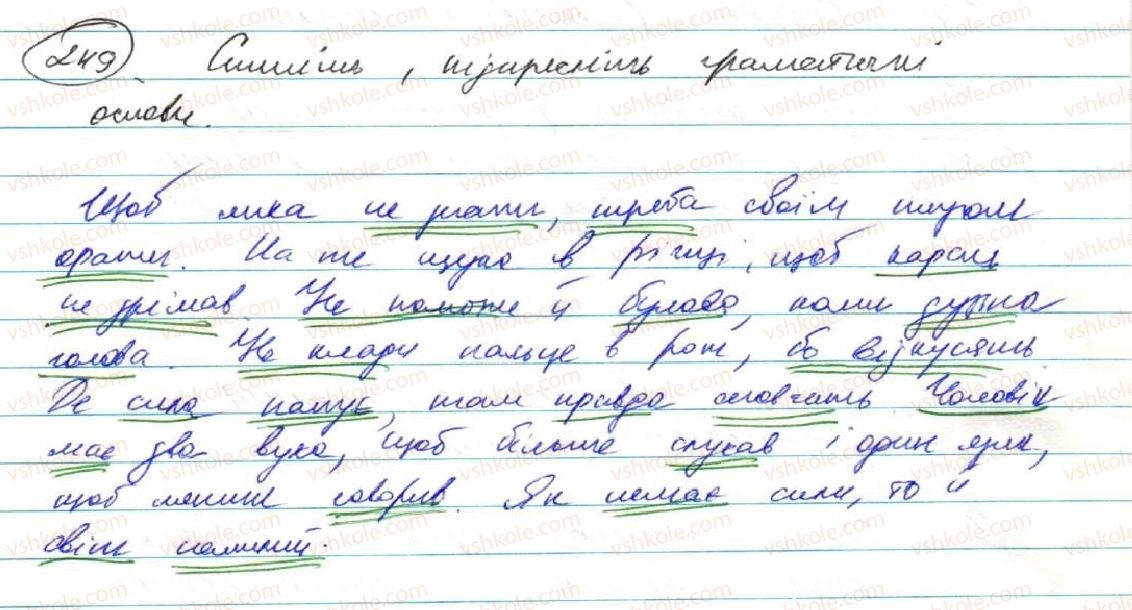 249. Спишіть, підкресліть граматичні
основи.
Щоб лиха не знати, треба своїм плугом
орати. На те щука в річці, щоб карась
не дрімав. Не поможе й булава, коли дурна
голова. Не клади пальце в рот, бо відкусять
Де сила панує, там правда мовчить. Чоловік
має два вуха, щоб більше слухав і один язик,
щоб менше говорив. Як немає сили, то й
світ немилий.
vshkole.com